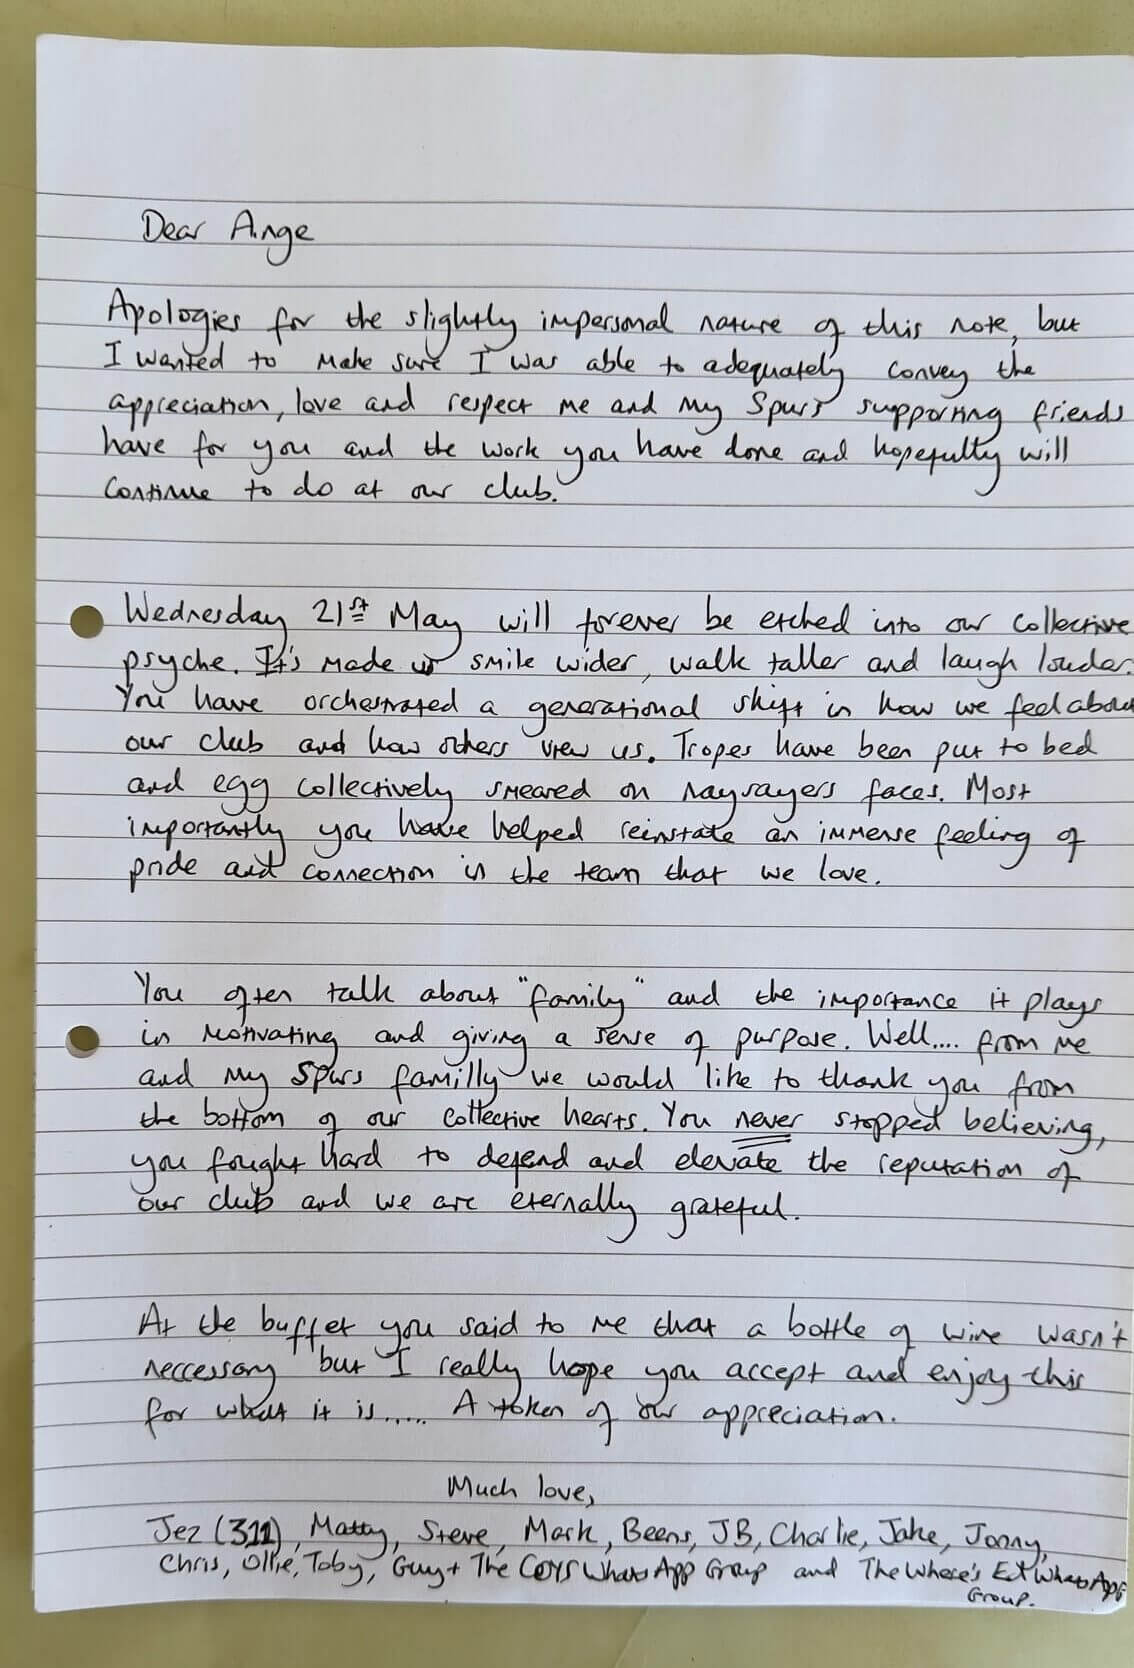 Dear Ange
Apologies for the slightly impersonal nature of this note, but
I wanted to make sure I was able to adequately convey the
appreciation, love and respect me and my Spurs supporting friends
have for you and the work you have done and hopefully will
continue to do at our club.
Wednesday 21st May will forever be etched into our collective
psyche. It's made us smile wider, walk taller and laugh louder.
You have orchestrated a generational shift in how we feel about
our club and how others view us. Tropes have been put to bed
and egg collectively smeared on naysayers faces. Most
importantly you have helped reinstate an immense feeling of
pride and connection in the team that we love.
You often talk about "family" and the importance it plays
in motivating and giving a sense of purpose. Well.... from me
and my Spurs familly we would like to thank you from
the bottom of our collective hearts. You never stopped believing,
you fought hard to defend and elevate the reputation of
our club and we are eternally grateful.
At the buffet you said to me that a bottle of wine wasn't
neccessary but I really hope you accept and enjoy this
for what it is..... A token of our appreciation.
Much love,
Jez (311), Matty, Steve, Mark, Beens, JB, Charlie, Jake, Jonny,
Chris, Ollie, Toby, Guy + The COYS WhatsApp Group and The Where's Ext WhatsApp
Group.